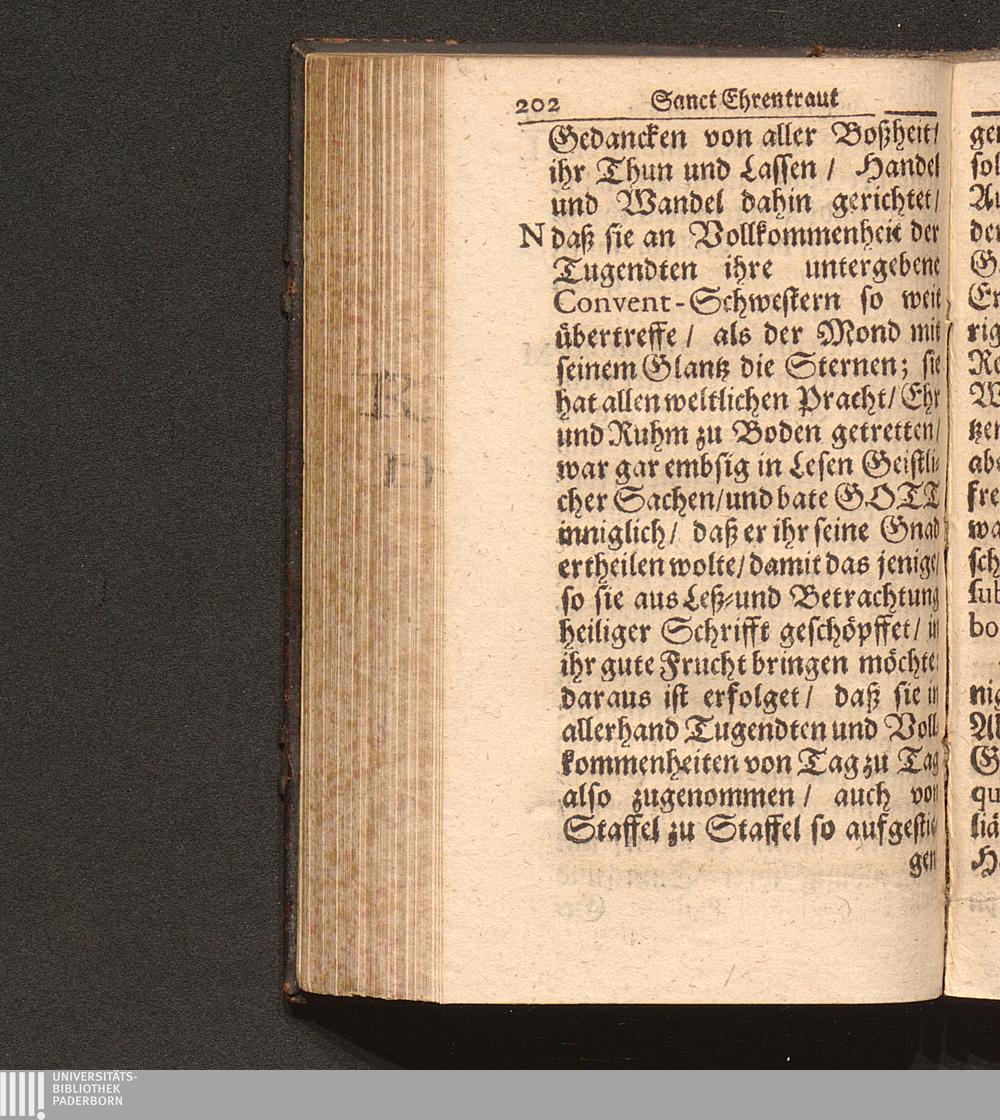 202 Sanct Ehrentraut
Gedancken von aller Boßheit/
ihr Thun und Lassen / Handel
und Wandel dahin gerichtet/
N daß sie an Vollkommenheit der
Tugendten ihre untergebene
Convent-Schwestern so weit
übertreffe / als der Mond mit
seinem Glantz die Sternen; sie
hat allen weltlichen Pracht/ Ehr
und Ruhm zu Boden getretten/
war gar embsig in Lesen Geistli-
cher Sachen/ und bate GOTT
inniglich/ daß er ihr seine Gnad
ertheilen wolte/ damit das jenige/
so sie aus Leß- und Betrachtung
heiliger Schrifft geschöpffet/ in
ihr gute Frucht bringen möchte:
daraus ist erfolget/ daß sie in
allerhand Tugendten und Voll-
kommenheiten von Tag zu Tag
also zugenommen / auch von
Staffel zu Staffel so aufgestie-
gen
UNIVERSITÄTS-
BIBLIOTHEK
PADERBORN